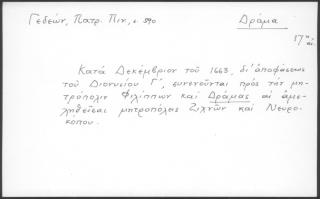 Γεδεών, Πατρ. Πιν., σ. 590
Δράμα
17ος αἰ.
Κατὰ Δεκέμβριον τοῦ 1663, δι' ἀποφάσεως
τοῦ Διονυσίου Γ', συνενοῦνται πρὸς τὴν μη-
τρόπολιν Φιλίππων καὶ Δράμας αἱ ἀμε-
ληθεῖσαι μητροπόλεις Ζιχνῶν καὶ Νευρο-
κόπου.